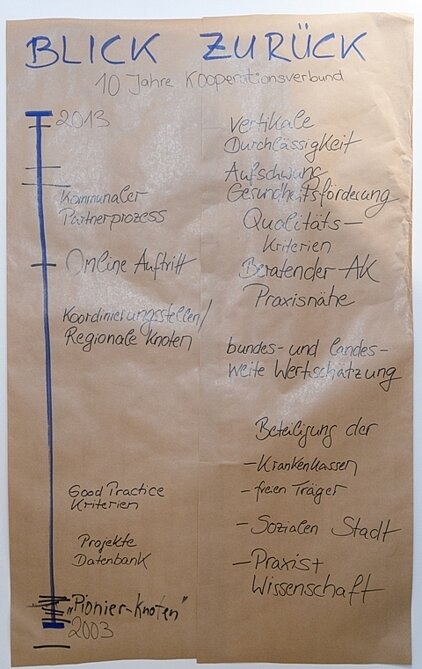 BLICK ZURÜCK
10 Jahre Kooperationsverbund
2013
Kommunaler
Partnerprozess
Online Auftritt
Koordinierungsstellen/
Regionale Knoten
Good Practice
Kriterien
Projekte
Datenbank
„Pionier-Knoten"
2003
Vertikale
Durchlässigkeit
Aufschwung
Gesundheitsförderung
Qualitäts-
Kriterien
Beratender AK
Praxisnähe
bundes- und landes-
weite Wertschätzung
Beteiligung der
- Krankenkassen
- freien Träger
- Sozialen Stadt
- Praxis +
Wissenschaft